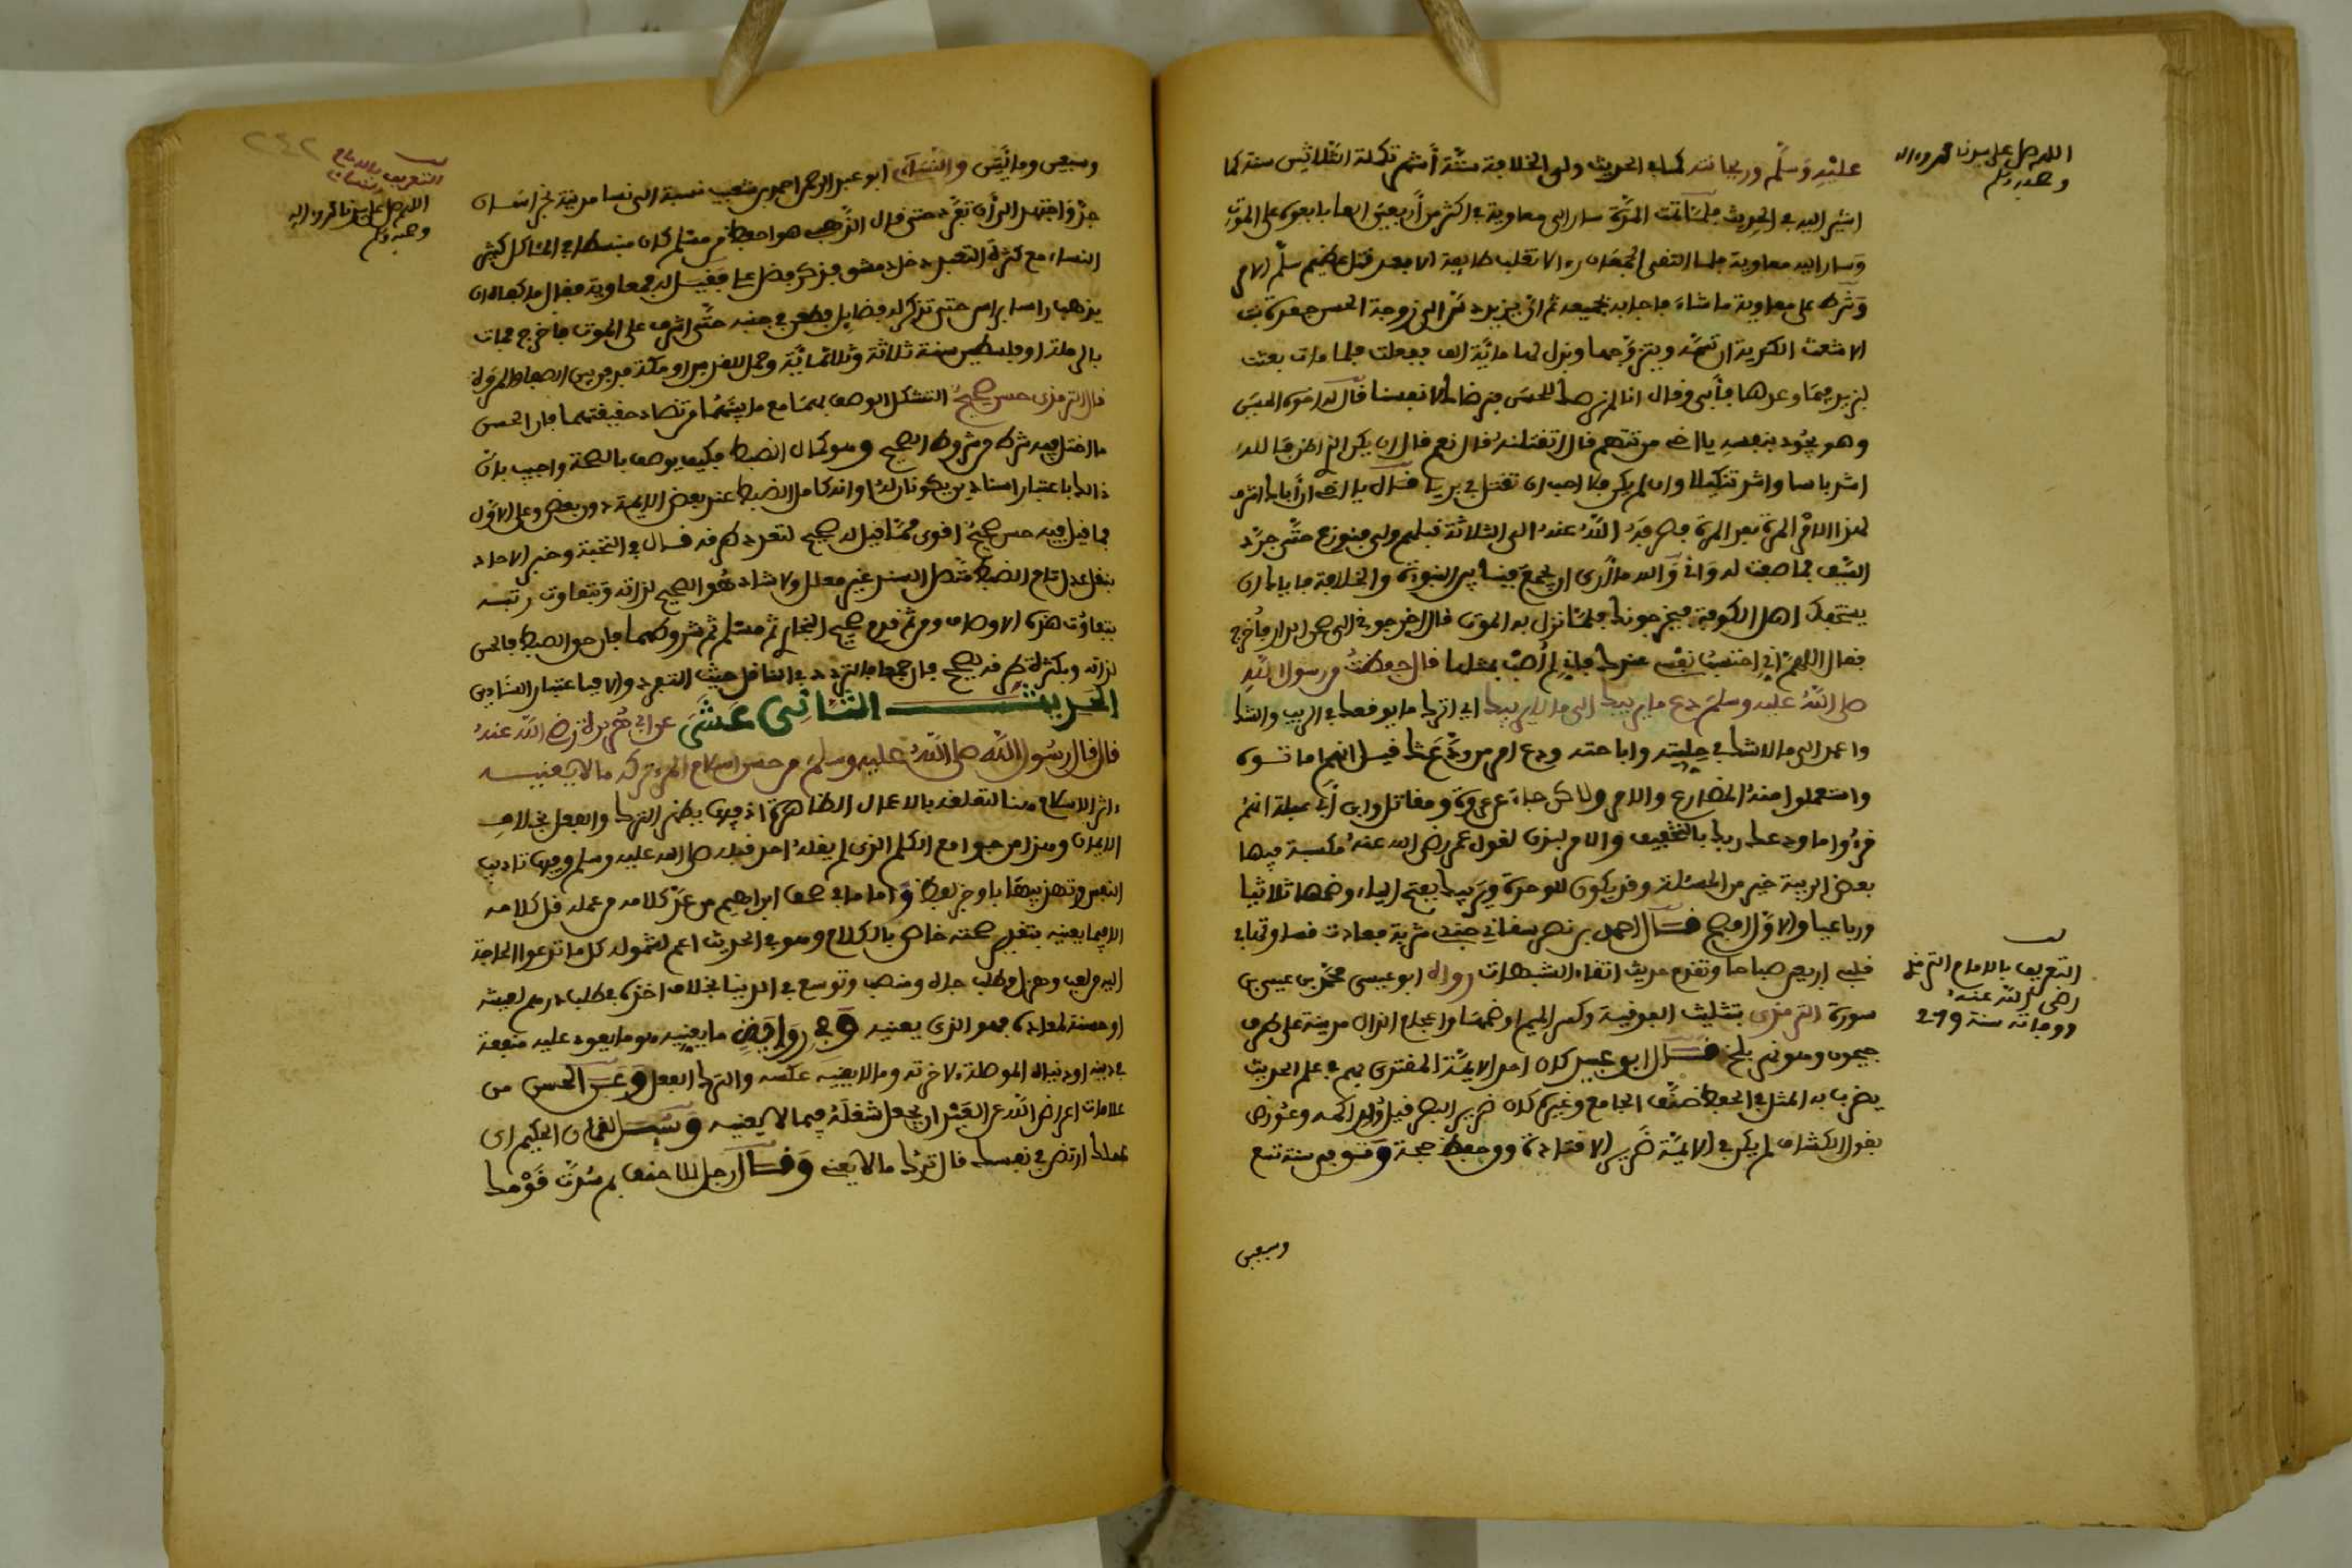 عليه وسلم وريحانته كما في الحديث ولي الخلافة ستة أشهر تكملة الثلاثين سنة كما
اشير اليه في الحديث فلما تمت المدة سار الى معاوية في اكثر من أربعين الفا بايعوه على الموت
وسار اليه معاوية فلما التقى الجمعان راى الا تغلب طايفة الا بعد قتل عظيم سلم الامر
وشرط على معاوية ما شاء فاجابه لجميعه ثم ان يزيد دس الى زوجة الحسن جعدة بنت
الاشعث الكندية ان تسمه ويتزوجها وبذل لها مائة الف ففعلت فلما مات بعثت
ليزيد فيما وعدها فأبى وقال انا لم نرضك للحسن فنرضاك لانفسنا قال له اخوه الحسين
وهو يجود بنفسه يا اخي من تتهم قال لتقتله قال نعم قال ان يكن الذي اظن فالله
اشد باسا واشد تنكيلا وان لم يكن فلا احب ان تقتل في بريئا
لهذا الامر المرة بعد المرة فصرفه الله عنه الى الثلاثة قبلهم ولي فنوزع حتى جرد
السيف فما صفت له واني والله ما أرى ان يجمع فينا بين النبوة والخلافة فاياك ان
يستخفك اهل الكوفة فيخرجوك فلما نزل به الموت قال اخرجوني الى صحن الدار فأخرج
فقال اللهم اني احتسب نفسي عندك فاني لم أصب بمثلها قال حفظت من رسول الله
صلى الله عليه وسلم دع ما يريبك الى ما لا يريبك اي اترك ما يوقعك في الريب والشك
واعمد الى ما لا شك في حليته واباحته ودع امر من ودع
واستعملوا منه المضارع والامر ولاكن جاء عن عروة ومقاتل وابن أبي عبلة انهم
قرءوا ما ودعك ربك بالتخفيف والامر لقول عمر رضي الله عنه مكسبة فيها
بعض الريبة خير من المسئلة وقد يكون للوحدة ويريبك بفتح الياء وضمها ثلاثيا
ورباعيا والاول افصح قال احمد بن نصر سقاني جندي شربة فعادت قساوتها في
قلبي اربعين صباحا وتقدم حديث اتقاء الشبهات رواه ابو عيسى محمد بن عيسى بن
سورة الترمذي بتثليث الفوقية وكسر الميم او ضمها واعجام الذال مدينة على طرف
جيحون وهو نهر بلخ قال ابو عيسى كان احد الايمة المقتدى بهم في علم الحديث
يضرب به المثل في الحفظ صنف الجامع وغيره كان ضرير البصر قيل ولد اكمه
بقول الكشاف لم يكن في الايمة ضرير الا قتادة ووحفظ حجة وتوفي سنة تسع
وسبعين
اللهم صل على سيدنا محمد واله
وصحبه وسلم
التعريف بالامام الترمذي
رضي الله عنه
ووفاته سنة 279
وسبعين ومائتين والنسائي ابو عبد الرحمن احمد بن شعيب نسبة الى نسا مدينة بخراسان
جد واجتهد الى أن تفرد حتى قال الذهبي هو احفظ من مسلم كان منبسطا في الماكل كثير
النساء مع كثرة التعبد دخل دمشق فذكر فضل علي فقيل له فمعاوية فقال ما كفاه ان
يذهب راسا براس حتى تذكر له فضايل فطعن في جنبه حتى اشرف على الموت فاخرج فمات
بالرملة او فلسطين سنة ثلاثة وثلاثمائة وحمل للقدس او مكة فدفن بين الصفا والمروة
قال الترمذي حسن صحيح استشكل الوصف بهما مع ما بينهما من تضاد حقيقتهما فان الحسن
ما اختل فيه شرط من شروط الصحيح وهو كمال الضبط فكيف يوصف بالصحة واجيب بان
ذالك باعتبار اسنادين يكونان له او انه كامل الضبط عند بعض الايمة دون بعض وعلى الاول
فما قيل فيه حسن صحيح اقوى مما قيل له صحيح لتعدد طرقه قال في النخبة وخبر الاحاد
بنقل عدل تام الضبط متصل السند غير معلل ولا شاذ هو الصحيح لذاته وتتفاوت رتبه
بتفاوت هذه الاوصاف ومن ثم قدم صحيح البخاري ثم مسلم ثم شروطهما فان خف الضبط فالحسن
لذاته وبكثرة طرقه يصحح فان جمعا فللتردد في الناقل حيث التفرد والا فباعتبار اسنادين
الحديث الثاني عشر عن ابي هريرة رضي الله عنه
قال قال رسول الله صلى الله عليه وسلم من حسن اسلام المرء تركه ما لا يعنيه
اثر الاسلام هنا لتعلقه بالاعمال الظاهرة اذ فيها يظهر الترك والفعل بخلاف
الايمان وهذا من جوامع الكلم الذي لم يقله احد قبله صلى الله عليه وسلم وفيه تاديب
النفس وتهذيبها باوجز لفظ واما ما في صحف ابراهيم من عد كلامه من عمله قل كلامه
الا فيما يعنيه خاص بالكلام وهو في الحديث اعم لشموله كل ما تدعوا الحاجة
اليه من لعب وهزل وطلب جاه ومنصب وتوسع في الدنيا بخلاف اخذه في طلب درهم لعيشه
او حسنة لمعاده فهو الذي يعنيه وفي ما يعنيه هو ما يعود عليه منفعة
في دينه او دنياه الموصلة لاخرته وما لا يعنيه عكسه والترك الفعل وعن الحسن من
علامات اعراض الله عن العبد ان يجعل شغله فيما لا يعنيه وسئل لقمان الحكيم اي
عملك ارتضي في نفسك قال ترك ما لا يعنيني وقال رجل للاحنف بم سدت قومك
٢٤٢
التعريف بالامام
النسائي
اللهم صل على سيدنا محمد واله
وصحبه وسلم